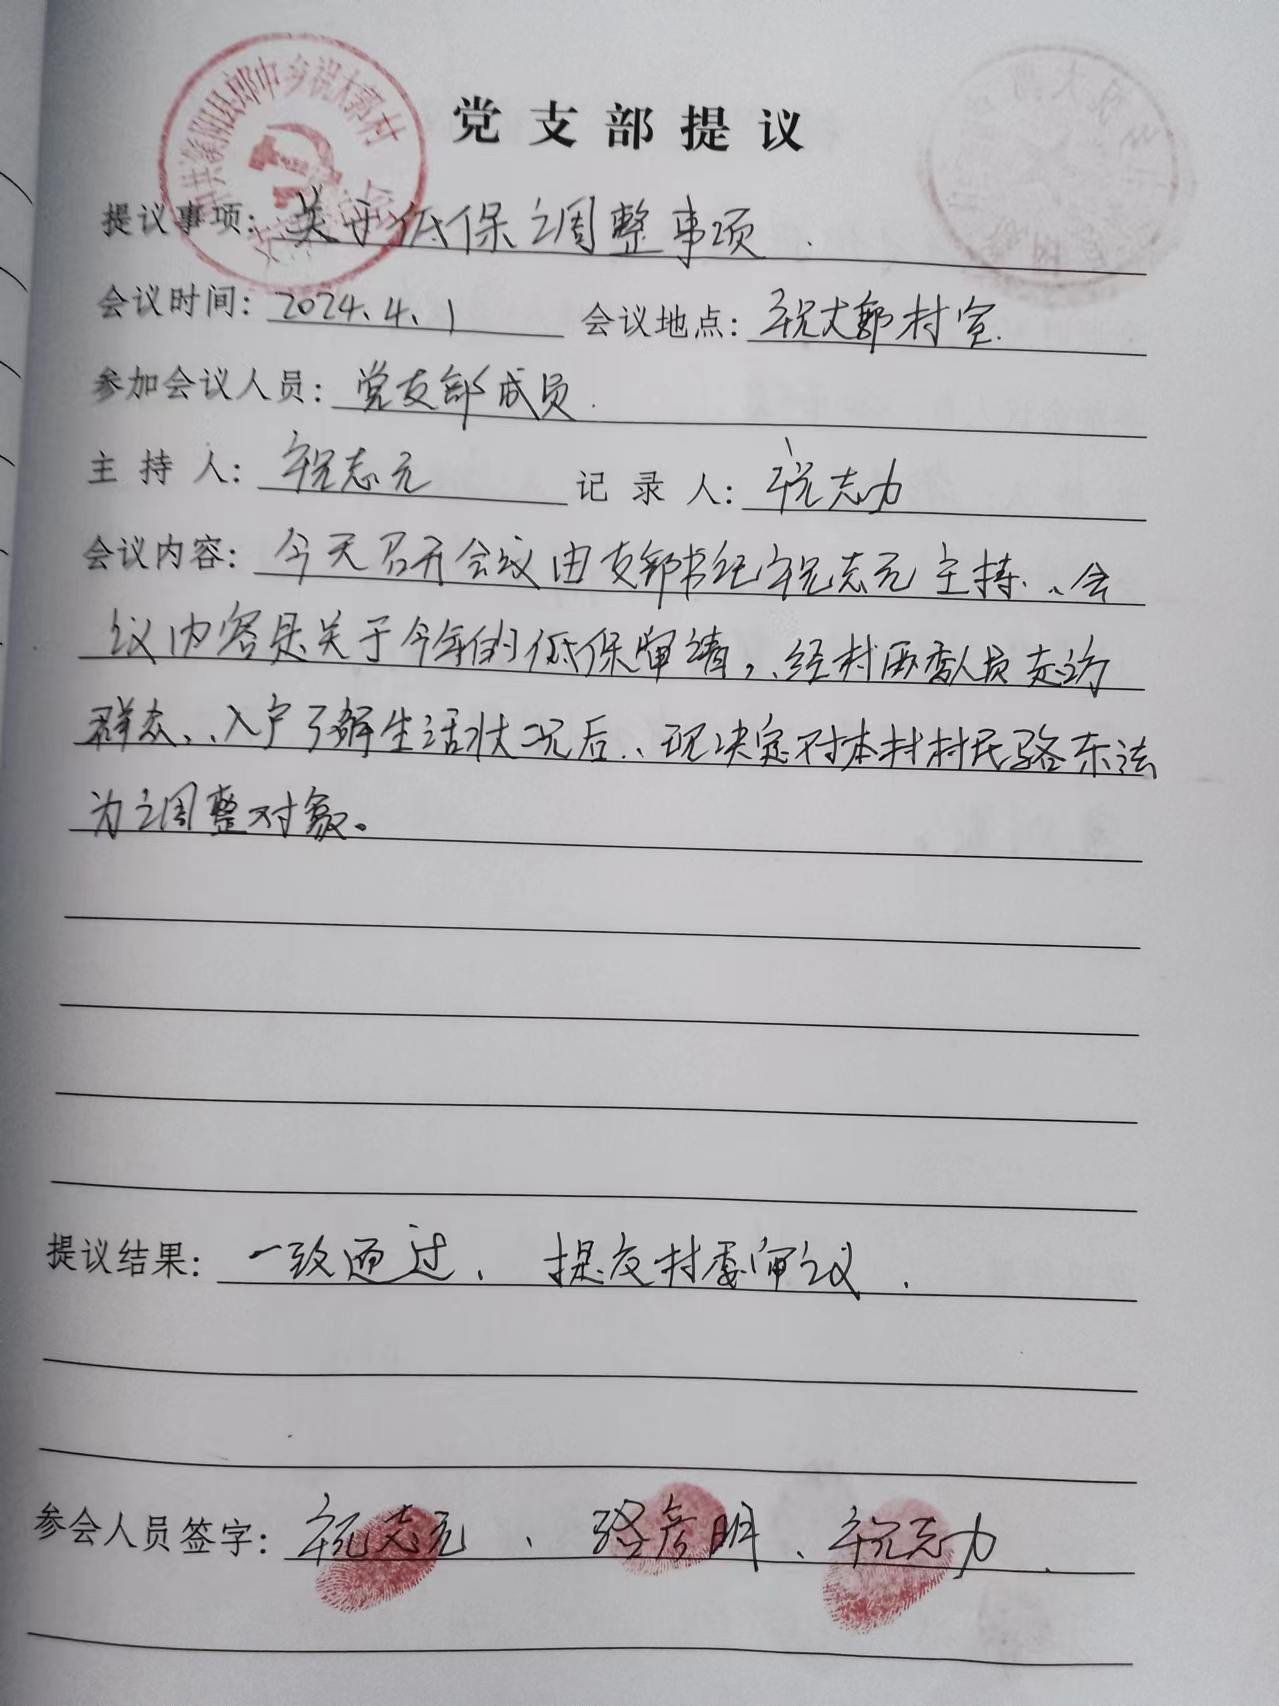 党支部提议
提议事项：关于低保调整事项.
会议时间：2024.4.1 会议地点：祝大郭村室.
参加会议人员：党支部成员.
主持人：祝志元 记录人：祝志力
会议内容：今天召开会议由支部书纪祝志元主持、会
议内容是关于今年的低保审请，经村两委人员走访
群众、入户了解生活状况后、现决定对本村村民骆东法
为调整对象。
提议结果：一致通过、提交村委审议.
参会人员签字：祝志元、骆彦明、祝志力.